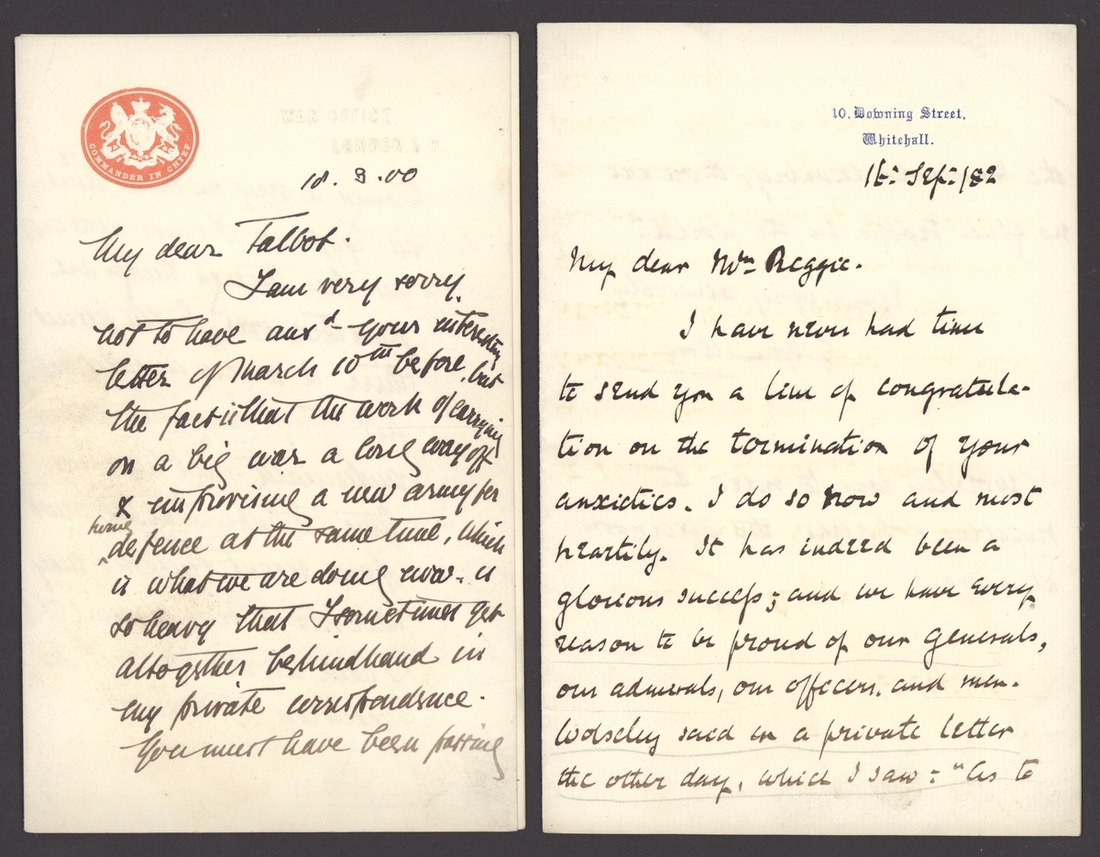 COMMANDER IN CHIEF
WAR OFFICE.
LONDON. S.W.
18.3.00
My dear Talbot.
I am very sorry
not to have ansd your interesting
letter of March 10th before, but
the fact is that the work of carrying
on a big war a long way off
& improvising a new army for
home
defence at the same time, which
is what we are doing now, is
so heavy that I sometimes get
altogether behindhand in
my private correspondence.
You must have been passing
10. Downing Street.
Whitehall.
16: Sep: /82
My dear Mrs Reggie.
I have never had time
to send you a line of congratula-
tion on the termination of your
anxieties. I do so now and most
heartily. It has indeed been a
glorious success; and we have every
reason to be proud of our Generals,
our admirals, our officers, and men.
Wolseley said in a private letter
the other day, which I saw: "As to